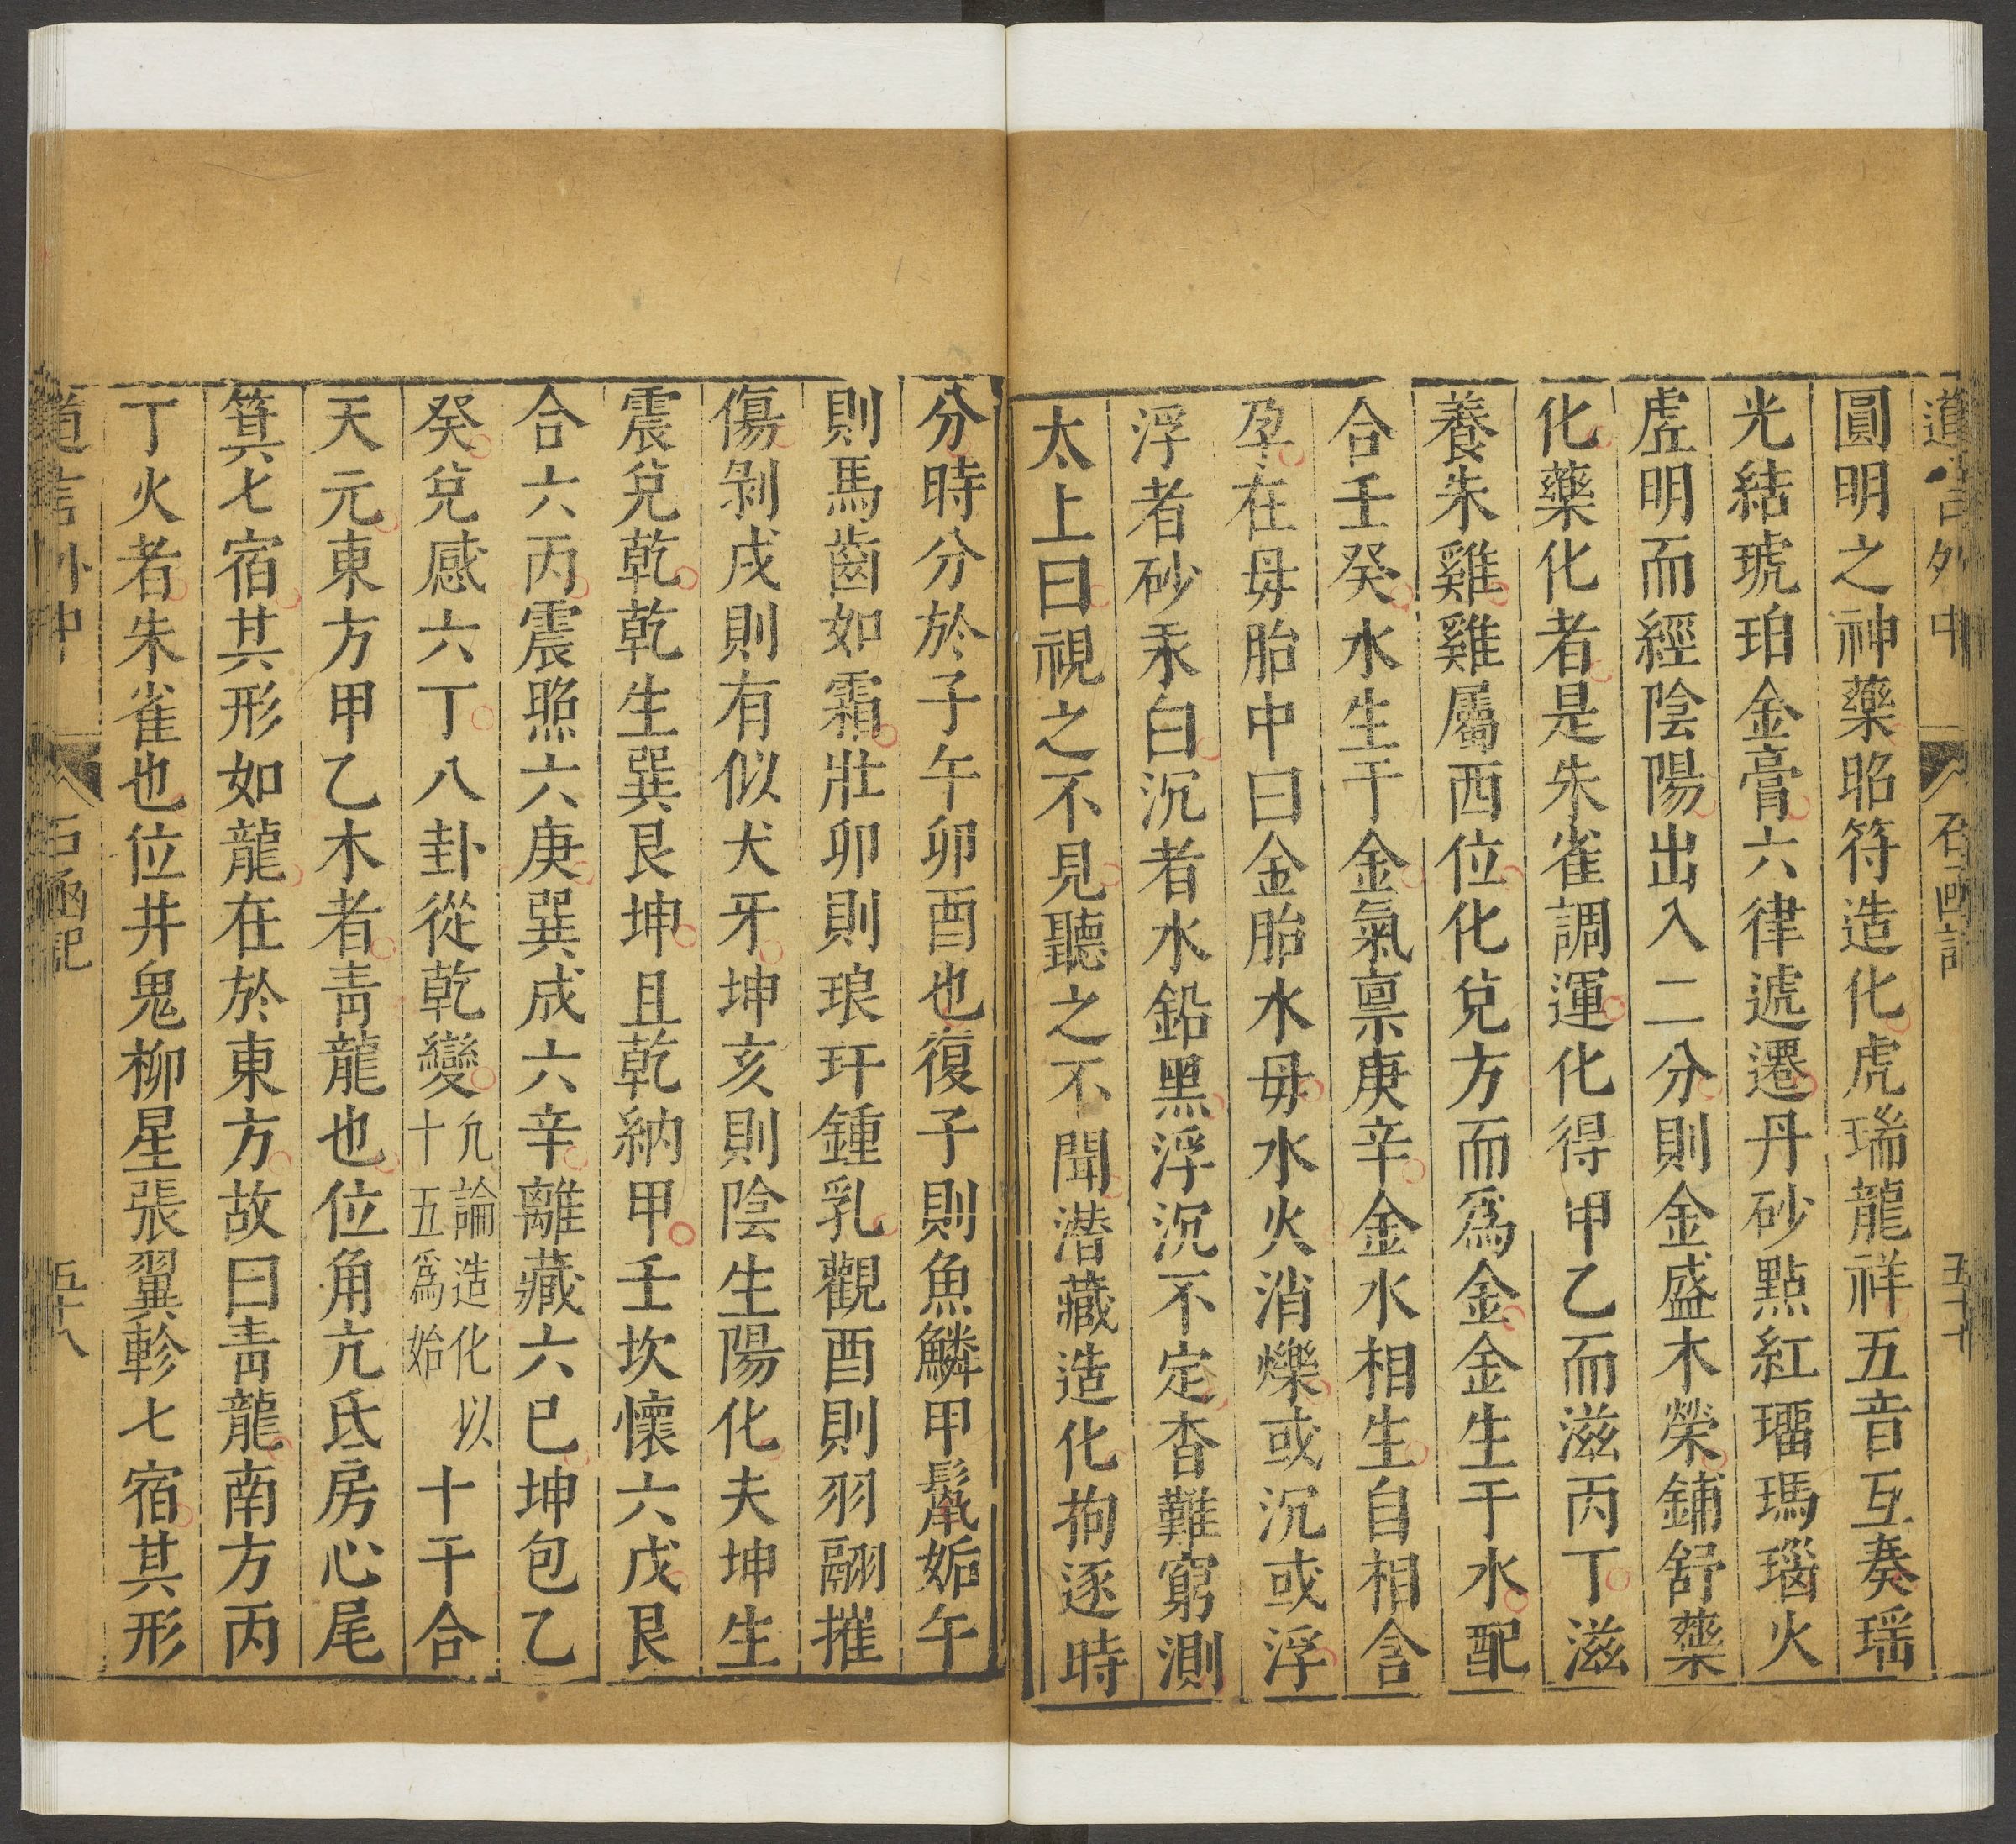 道言外中 石函記 五十七
圓明之神藥昭符造化虎瑞龍祥五音互奏瑶
光結琥珀金膏六律遞遷丹砂點紅瑙瑪瑙火
虗明而經陰陽出入二分則金盛木榮鋪舒藥
化藥化者是朱雀調運化得甲乙而滋丙丁滋
養朱雞雞屬西位化兌方而爲金金生干水配
合壬癸水生干金氣禀庚辛金水相生自相含
孕在毋胎中曰金胎水毋水火消爍或沉或浮
浮者砂汞白沉者水鉛黑浮沉不定杳難窮測
太上曰視之不見聽之不聞潜藏造化拘逐時
分時分於子午卯酉也復子則魚鱗甲鬣姤午
則馬齒如霜壯卯則琅玕鍾乳觀酉則羽翮摧
傷剝戌則有似犬牙坤亥則陰生陽化夫坤生
震兌乾乾生巽艮坤且乾納甲壬坎懷六戊艮
合六丙震照六庚巽成六辛離藏六巳坤包乙
癸兌感六丁八卦從乾變凢論造化以十五爲始十干合
天元東方甲乙木者青龍也位角亢氐房心尾
箕七宿其形如龍在於東方故曰青龍南方丙
丁火者朱雀也位井鬼柳星張翼軫七宿其形
道言外中 石函記 五十八